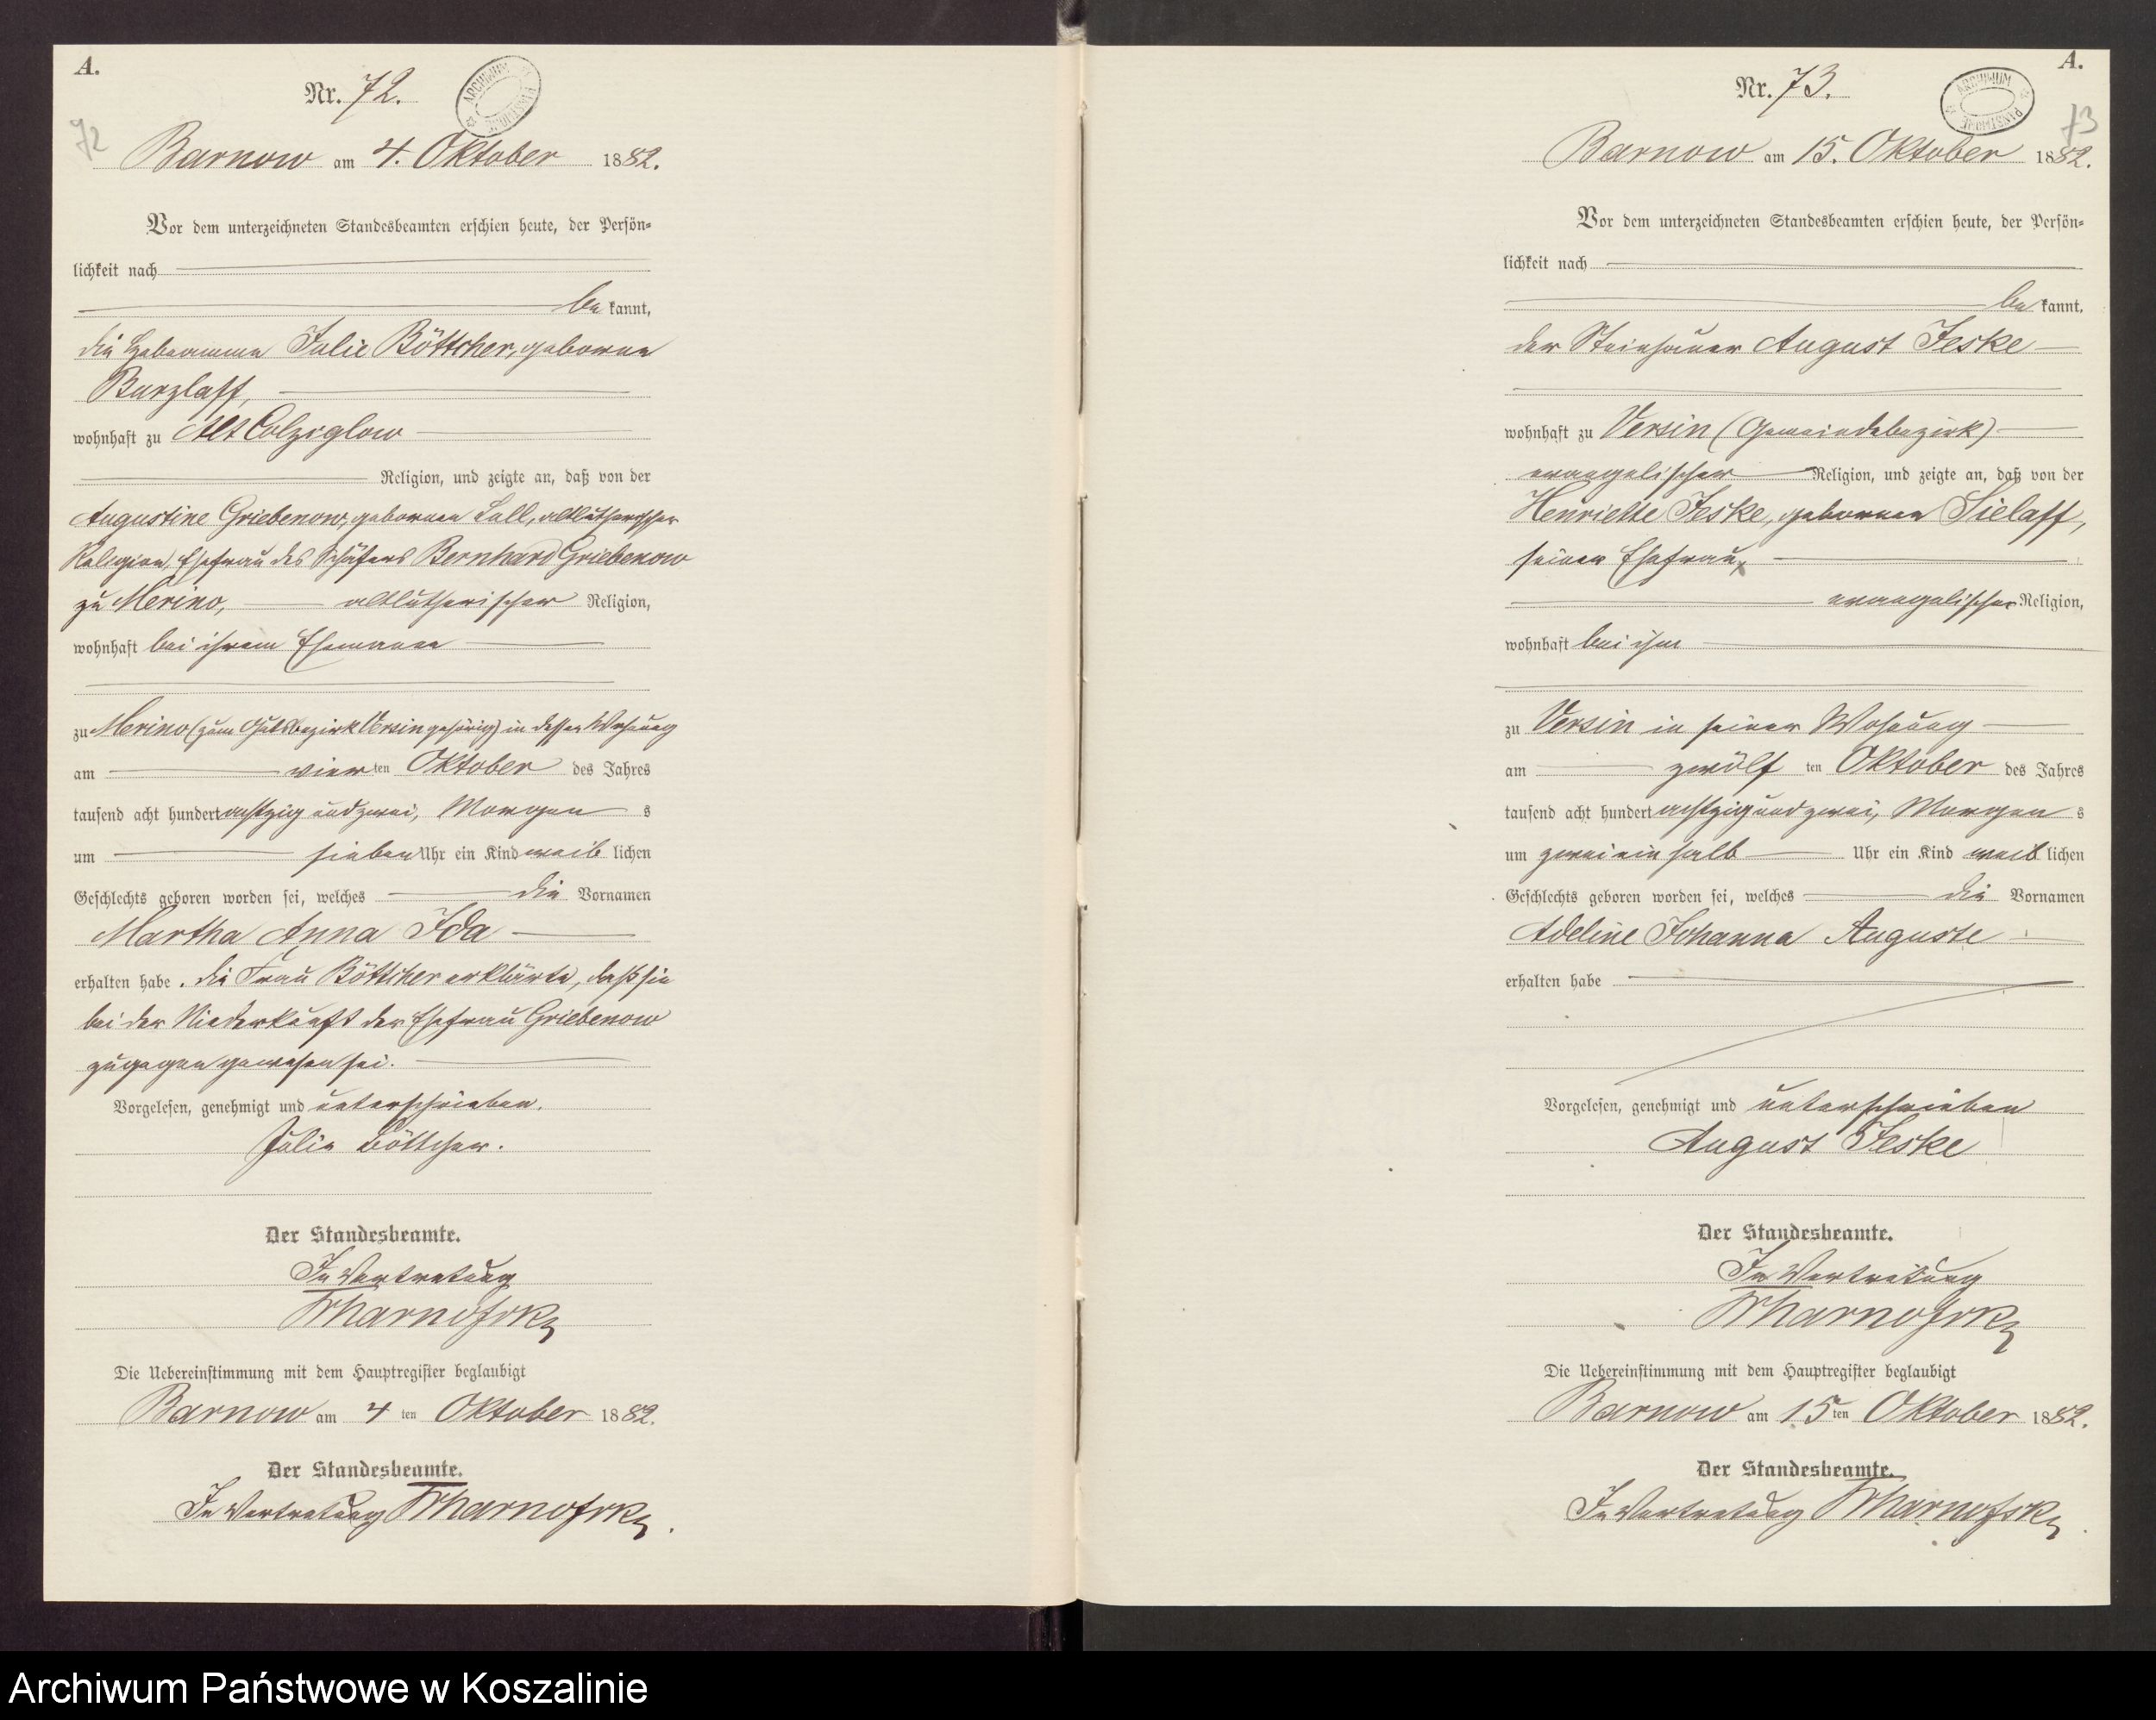 A.
Nr. 72.
ARCHIWUM PAŃSTWOWE
72
Barnow am 4. Oktober 1882.
Vor dem unterzeichneten Standesbeamten erschien heute, der Persön=
lichkeit nach
be kannt,
die Hebeamme Julie Böttcher, geborene
Barzlaff,
wohnhaft zu Alt Colziglow
Religion, und zeigte an, daß von der
Augustine Griebenow, geborenen Lall, altlutherischer
Religion, Ehefrau des Schäfers Bernhard Griebenow
zu Merino, altlutherischer Religion,
wohnhaft bei ihrem Ehemanne
zu Merino (zum Gutsbezirk Versin gehörig) in dessen Wohnung
am vier ten Oktober des Jahres
tausend acht hundert achtzig und zwei, Morgen s
um sieben Uhr ein Kind weib lichen
Geschlechts geboren worden sei, welches die Vornamen
Martha Anna Ida
erhalten habe. Die Frau Böttcher erklärte, daß sie
bei der Niederkunft der Ehefrau Griebenow
zugegen gewesen sei.
Vorgelesen, genehmigt und unterschrieben.
Julie Böttcher.
Der Standesbeamte.
In Vertretung
Die Uebereinstimmung mit dem Hauptregister beglaubigt
Barnow am 4 ten Oktober 1882.
Der Standesbeamte.
In Vertretung
A.
Nr. 73.
ARCHIWUM PAŃSTWOWE
73
Barnow am 15. Oktober 1882.
Vor dem unterzeichneten Standesbeamten erschien heute, der Persön=
lichkeit nach
be kannt,
der Steinhauer August Jeske
wohnhaft zu Versin (Gemeindebezirk)
evangelischer Religion, und zeigte an, daß von der
Henriette Jeske, geborenen Sielaff,
seiner Ehefrau,
evangelischer Religion,
wohnhaft bei ihm
zu Versin in seiner Wohnung
am zwölf ten Oktober des Jahres
tausend acht hundert achtzig und zwei, Morgen s
um zwei ein halb Uhr ein Kind weib lichen
Geschlechts geboren worden sei, welches die Vornamen
Adeline Johanna Auguste
erhalten habe
Vorgelesen, genehmigt und unterschrieben
August Jeske
Der Standesbeamte.
In Vertretung
Die Uebereinstimmung mit dem Hauptregister beglaubigt
Barnow am 15 ten Oktober 1882.
Der Standesbeamte.
In Vertretung
Archiwum Państwowe w Koszalinie